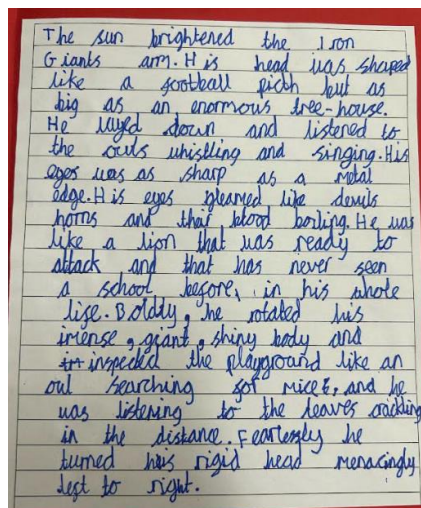 The sun brightened the Iron
Giants arm. His head was shaped
like a football picth but as
big as an enormous tree-house.
He layed down and listened to
the owls whistling and singing. His
eyes was as sharp as a metal
edge. His eyes gleamed like devils
horns and their blood boiling. He was
like a lion that was ready to
attack and that has never seen
a school before, in his whole
life. Boldly, he rotated his
imense, giant, shiny body and
inspected the playground like an
owl searching for mice, and he
was listening to the leaves crackling
in the distance. Fearlessly he
turned his rigid head menacingly
left to right.